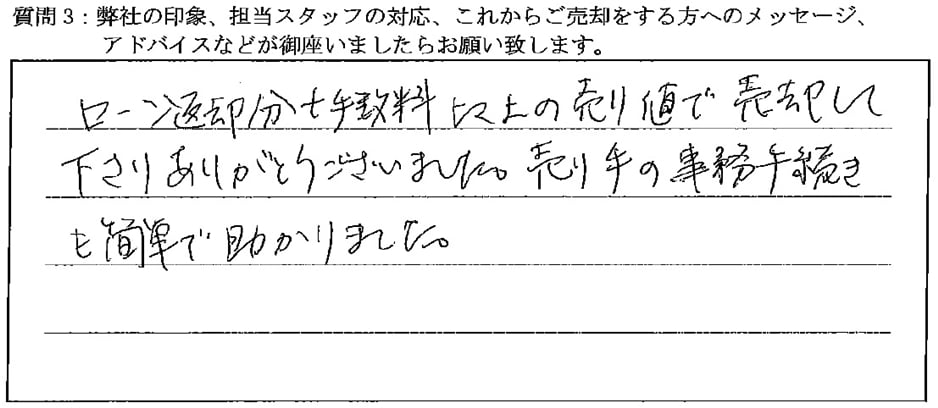 質問3：弊社の印象、担当スタッフの対応、これからご売却をする方へのメッセージ、
アドバイスなどが御座いましたらお願い致します。
ローン返却分+手数料以上の売り値で売却して
下さりありがとうございました。売り手の事務手続き
も簡単で助かりました。